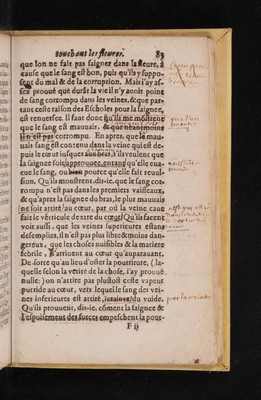 touchant les fieures. 83
que lon ne fait pas saigner dans la fieure, à
cause que le sang est bon, puis qu'il s'y suppo-
se du mal & de la corruption. Mais i'ay as-
sez prouué que durāt la vie il n'y auoit point
de sang corrompu dans les veines, & que par-
tant ceste raison des Escholes pour la saignée,
est renuersee. Il faut donc qu'ils me monstrent
que le sang est mauuais, & que neantmoins
il n'est pas corrompu. En apres, que le mau-
uais sang est contenu dans la veine qui est de-
puis le cœur iusques aux bras, s'ils veulent que
la saignee soit approuuee, entand qu'elle eua-
cue le sang, ou bien pource qu'elle fait reuul-
sion. Qu'ils monstrent, dis-ie, que le sang cor-
rompu n'est pas dans les premiers vaisseaux,
& qu'apres la saignee du bras, le plus mauuais
ne soit attiré au cœur, par où la veine caue
fait le verticule de dextre du cœur. Qu'ils facent
voir aussi, que les veines superieures estans
desemplies, il n'est pas plus libre & moins dan-
gereux, que les choses nuisibles & la matiere
febrile, n'arriuent au cœur qu'auparauant.
De sorte qu'au lieu d'oster la pourriture, (la-
quelle selon la verité de la chose, i'ay prouué
nulle) on n'attire pas plustost ceste vapeur
putride au cœur, vers lequel le sang des vei-
nes inferieures est attiré, du vuide.
Qu'ils prouuent, dis-ie, cōment la saignée &
l'espuisement des forces empeschent la pour-
F ij